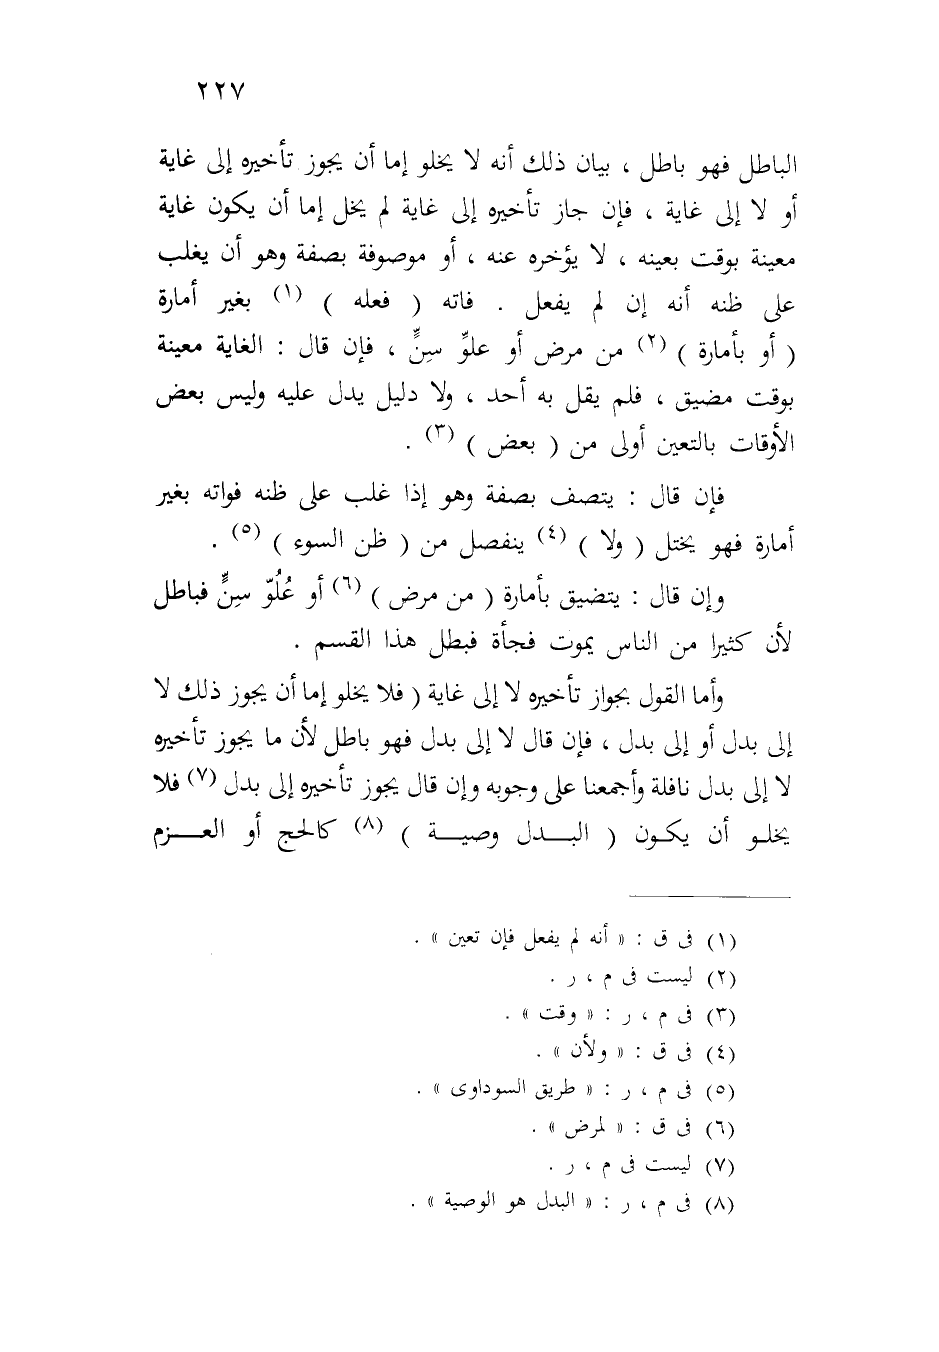 ٢٢٧
الباطل فهو باطل ، بيان ذلك أنه لا يخلو إما أن يجوز تأخيره إلى غاية
أو لا إلى غاية ، فإن جاز تأخيره إلى غاية لم يخل إما أن يكون غاية
معينة بوقت بعينه ، لا يؤخره عنه ، أو موصوفة بصفة وهو أن يغلب
على ظنه أنه إن لم يفعل . فاته ( فعله ) (١) بغير أمارة
( أو بأمارة ) (٢) من مرض أو علوِّ سِنٍّ ، فإن قال : الغاية معينة
بوقت مضيق ، فلم يقل به أحد ، ولا دليل يدل عليه وليس بعض
الأوقات بالتعين أولى من ( بعض ) (٣) .
فإن قال : يتصف بصفة وهو إذا غلب على ظنه فواته بغير
أمارة فهو يختل ( ولا ) (٤) ينفصل من ( ظن السوء ) (٥) .
وإن قال : يتضيق بأمارة ( من مرض ) (٦) أو عُلُوّ سِنٍّ فباطل
لأن كثيرا من الناس يموت فجأة فبطل هذا القسم .
وأما القول بجواز تأخيره لا إلى غاية ( فلا يخلو إما أن يجوز ذلك لا
إلى بدل أو إلى بدل ، فإن قال لا إلى بدل فهو باطل لأن ما يجوز تأخيره
لا إلى بدل نافلة وأجمعنا على وجوبه وإن قال يجوز تأخيره إلى بدل (٧) فلا
يخلـو أن يكـون ( البـــدل وصيــة ) (٨) كالحج أو العـــزم
(١) فى ق : « أنه لم يفعل فإن تعين » .
(٢) ليست فى م ، ر .
(٣) فى م ، ر : « وقت » .
(٤) فى ق : « ولأن » .
(٥) فى م ، ر : « طريق السوداوى » .
(٦) فى ق : « لمرض » .
(٧) ليست فى م ، ر .
(٨) فى م ، ر : « البدل هو الوصية » .